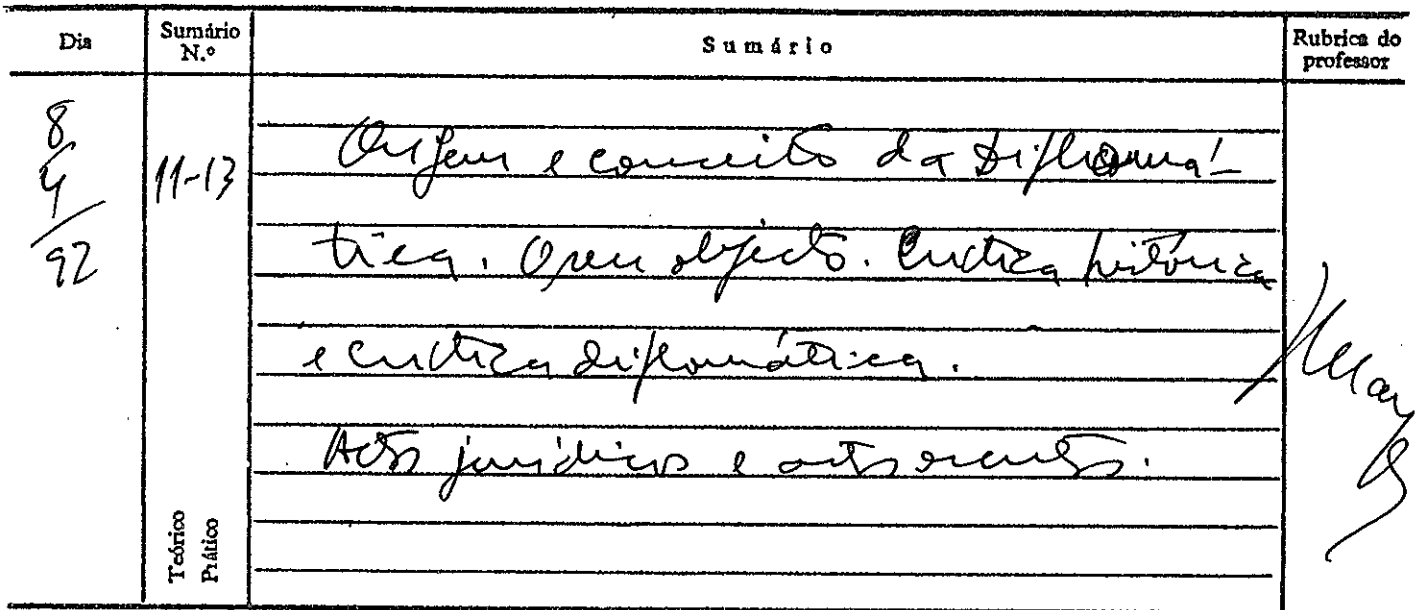 Dia
Sumário N.º
Sumário
Rubrica do professor
8/4/92
11-13
Origem e conceito da Diplomá-
tica. O seu objecto. Crítica histórica
e crítica diplomática.
Actos jurídicos e actos escritos.
Teórico
Prático